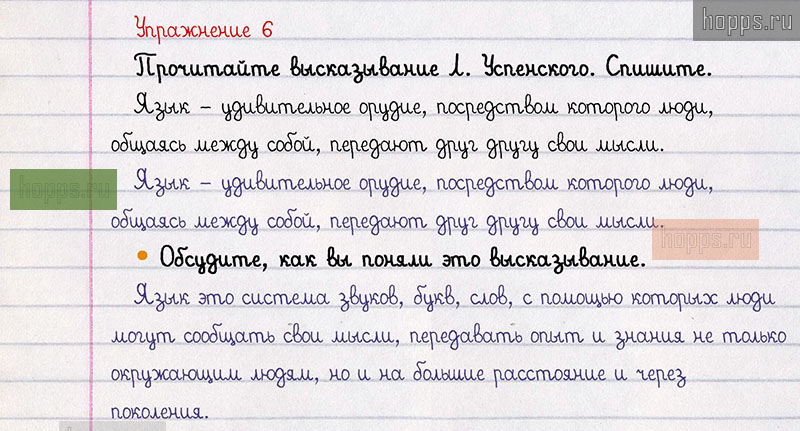 hopps.ru
Упражнение 6
Прочитайте высказывание Л. Успенского. Спишите.
Язык – удивительное орудие, посредством которого люди,
общаясь между собой, передают друг другу свои мысли.
hopps.ru
Язык – удивительное орудие, посредством которого люди,
общаясь между собой, передают друг другу свои мысли.
hopps.ru
• Обсудите, как вы поняли это высказывание.
Язык это система звуков, букв, слов, с помощью которых люди
могут сообщать свои мысли, передавать опыт и знания не только
окружающим людям, но и на большие расстояние и через
поколения.